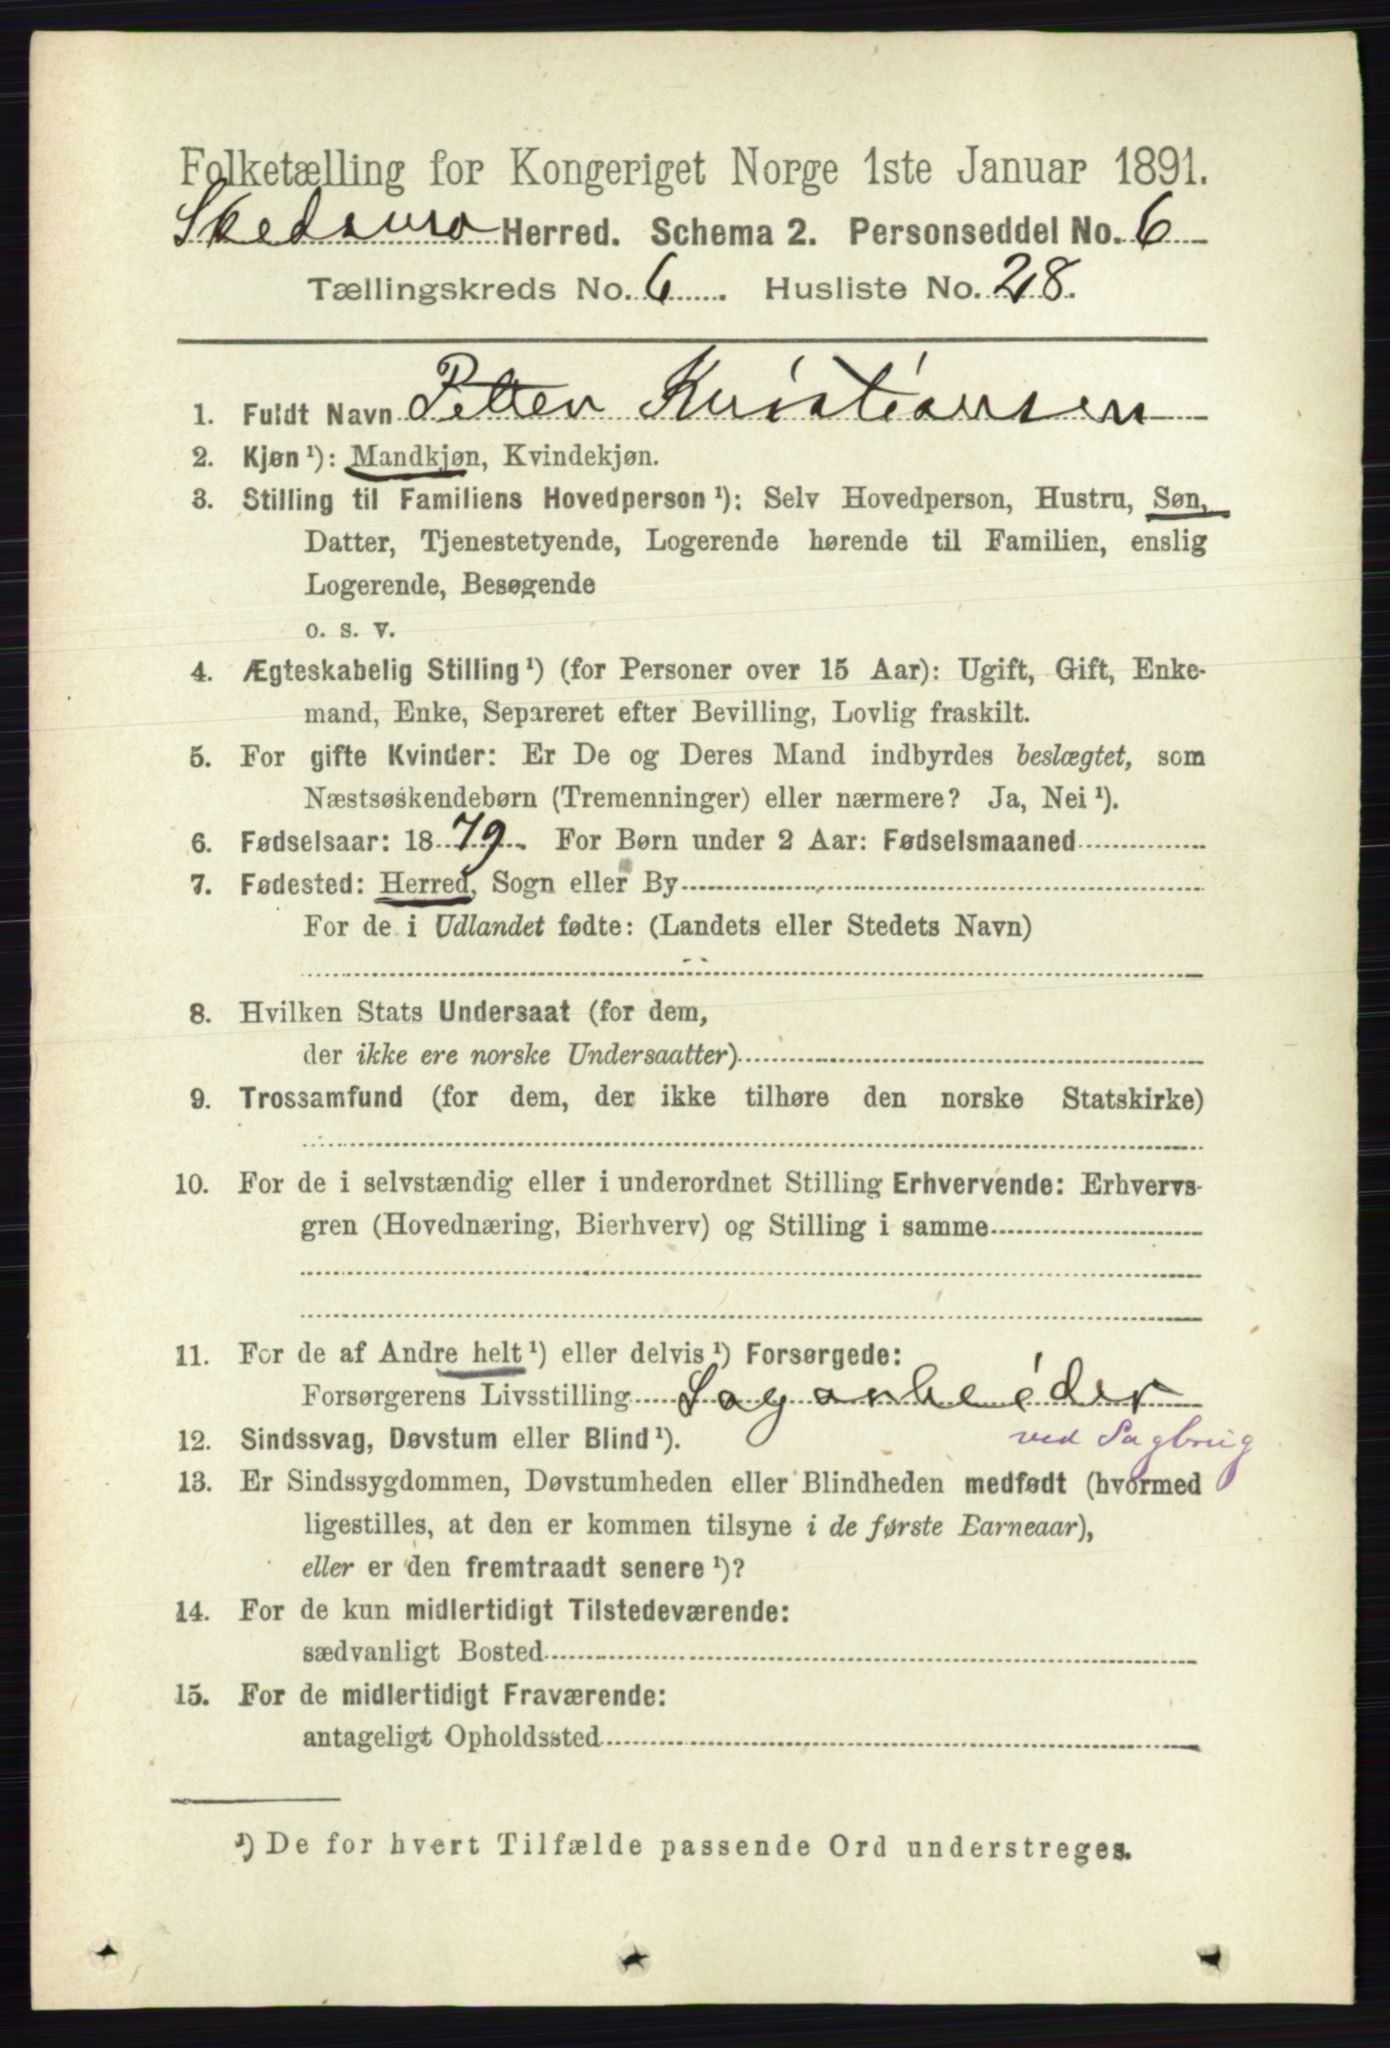 Folketælling for Kongeriget Norge 1ste Januar 1891.
Skedsmo Herred. Schema 2. Personseddel No. 6
Tællingskreds No. 6. Husliste No. 28.
1. Fuldt Navn Petter Kristiansen
2. Kjøn ¹): Mandkjøn, Kvindekjøn.
3. Stilling til Familiens Hovedperson ¹): Selv Hovedperson, Hustru, Søn,
Datter, Tjenestetyende, Logerende hørende til Familien, enslig
Logerende, Besøgende
o. s. v.
4. Ægteskabelig Stilling ¹) (for Personer over 15 Aar): Ugift, Gift, Enke-
mand, Enke, Separeret efter Bevilling, Lovlig fraskilt.
5. For gifte Kvinder: Er De og Deres Mand indbyrdes beslægtet, som
Næstsøskendebørn (Tremenninger) eller nærmere? Ja, Nei ¹).
6. Fødselsaar: 1879. For Børn under 2 Aar: Fødselsmaaned
7. Fødested: Herred, Sogn eller By
For de i Udlandet fødte: (Landets eller Stedets Navn)
8. Hvilken Stats Undersaat (for dem,
der ikke ere norske Undersaatter)
9. Trossamfund (for dem, der ikke tilhøre den norske Statskirke)
10. For de i selvstændig eller i underordnet Stilling Erhvervende: Erhvervs-
gren (Hovednæring, Bierhverv) og Stilling i samme
11. For de af Andre helt ¹) eller delvis ¹) Forsørgede:
Forsørgerens Livsstilling Sagarbeider
ved Sagbrug
12. Sindssvag, Døvstum eller Blind ¹).
13. Er Sindssygdommen, Døvstumheden eller Blindheden medfødt (hvormed
ligestilles, at den er kommen tilsyne i de første Barneaar),
eller er den fremtraadt senere ¹)?
14. For de kun midlertidigt Tilstedeværende:
sædvanligt Bosted
15. For de midlertidigt Fraværende:
antageligt Opholdssted
¹) De for hvert Tilfælde passende Ord understreges.